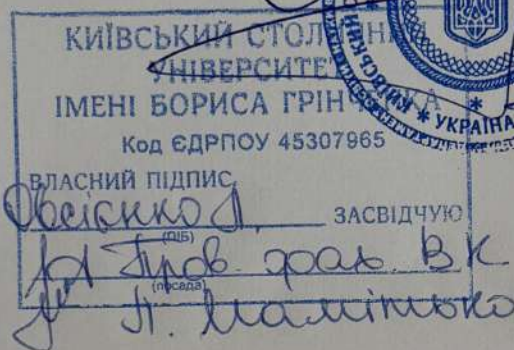 КИЇВСЬКИЙ СТОЛИЧНИЙ
УНІВЕРСИТЕТ
ІМЕНІ БОРИСА ГРІНЧЕНКА
Код ЄДРПОУ 45307965
ВЛАСНИЙ ПІДПИС
Овсієнко Л. ЗАСВІДЧУЮ
(ПІБ)
Пров. фах. ВК
(посада)
КИЇВСЬКИЙ * УКРАЇНА *